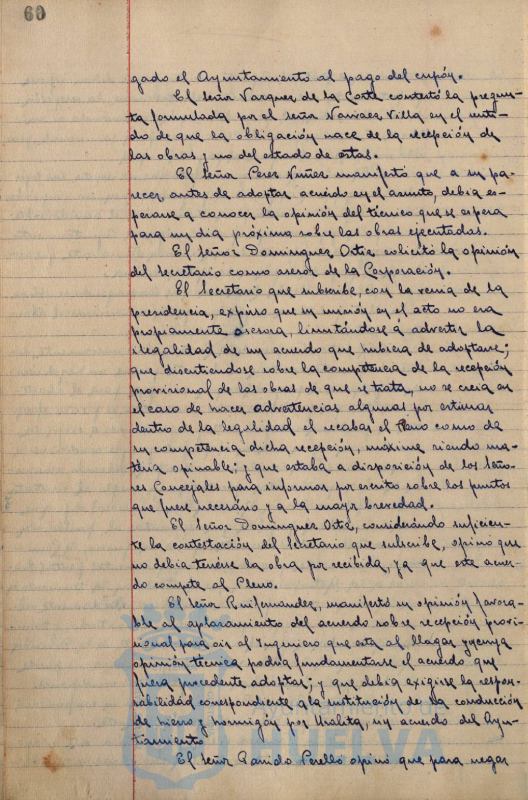 60
gado el Ayuntamiento al pago del cupón.
El señor Vazquez de la Corte contestó la pregun-
ta formulada por el señor Narvaez Villa en el senti-
do de que la obligación nace de la recepción de
las obras y no del estado de estas.
El señor Perez Nuñez manifestó que a su pa-
recer, antes de adoptar acuerdo en el asunto, debia es-
perarse a conocer la opinión del técnico que se espera
para un dia próximo sobre las obras ejecutadas.
El señor Dominguez Ortiz solicitó la opinión
del Secretario como asesor de la Corporación.
El Secretario que subscribe, con la venia de la
presidencia, expuso que su misión en el acto no era
propiamente asesora, limitándose á advertir la
ilegalidad de un acuerdo que hubiera de adoptarse;
que discutiendose sobre la competencia de la recepción
provisional de las obras de que se trata, no se creia en
el caso de hacer advertencias algunas por estimar
dentro de la legalidad el recabar el Pleno como de
su competencia dicha recepción, máxime siendo ma-
teria opinable; y que estaba a disposición de los Seño-
res Concejales para informar por escrito sobre los puntos
que fuere necesario y a la mayor brevedad.
El Señor Dominguez Ortiz, considerando suficien-
te la contestación del Secretario que subscribe, opino que
no debia tenerse la obra por recibida, ya que este acuer-
do compete al Pleno.
El señor Ruifernandez, manifestó su opinión favora-
ble al aplazamiento del acuerdo sobre recepción provi-
sional para oir al Ingeniero que está al llegar y en cuya
opinión técnica podria fundamentarse el acuerdo que
fuera procedente adoptar; y que debia exigirse la respon-
sabilidad correspondiente a la sustitución de la conducción
de hierro y hormigón por Uralita, sin acuerdo del Ayun-
tamiento
El señor Garrido Perelló opinó que para negar
HUELVA